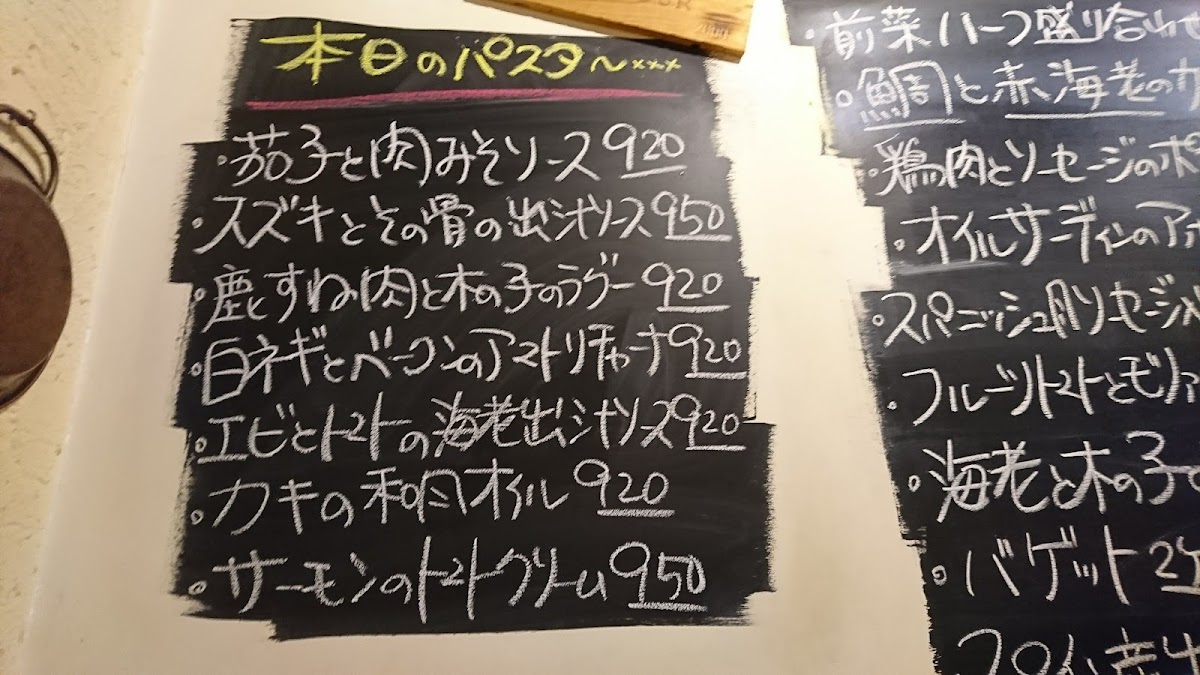 本日のパスタ〜×××
・茄子と肉みそソース 920
・スズキとその骨の出汁ソース 950
・鹿すね肉と木の子のラグー 920
・白ネギとベーコンのアマトリチャーナ 920
・エビとトマトの海老出汁ソース 920
・カキの和風オイル 920
・サーモンのトマトクリーム 950
・前菜ハーフ盛り合わせ
・鯛と赤海老のカ
・鶏肉とソーセージのポ
・オイルサーディンのア
・スパニッシュ風ソーセージ
・フルーツトマトとモッツァ
・海老と木の子
・バゲット 2
スペイン産生